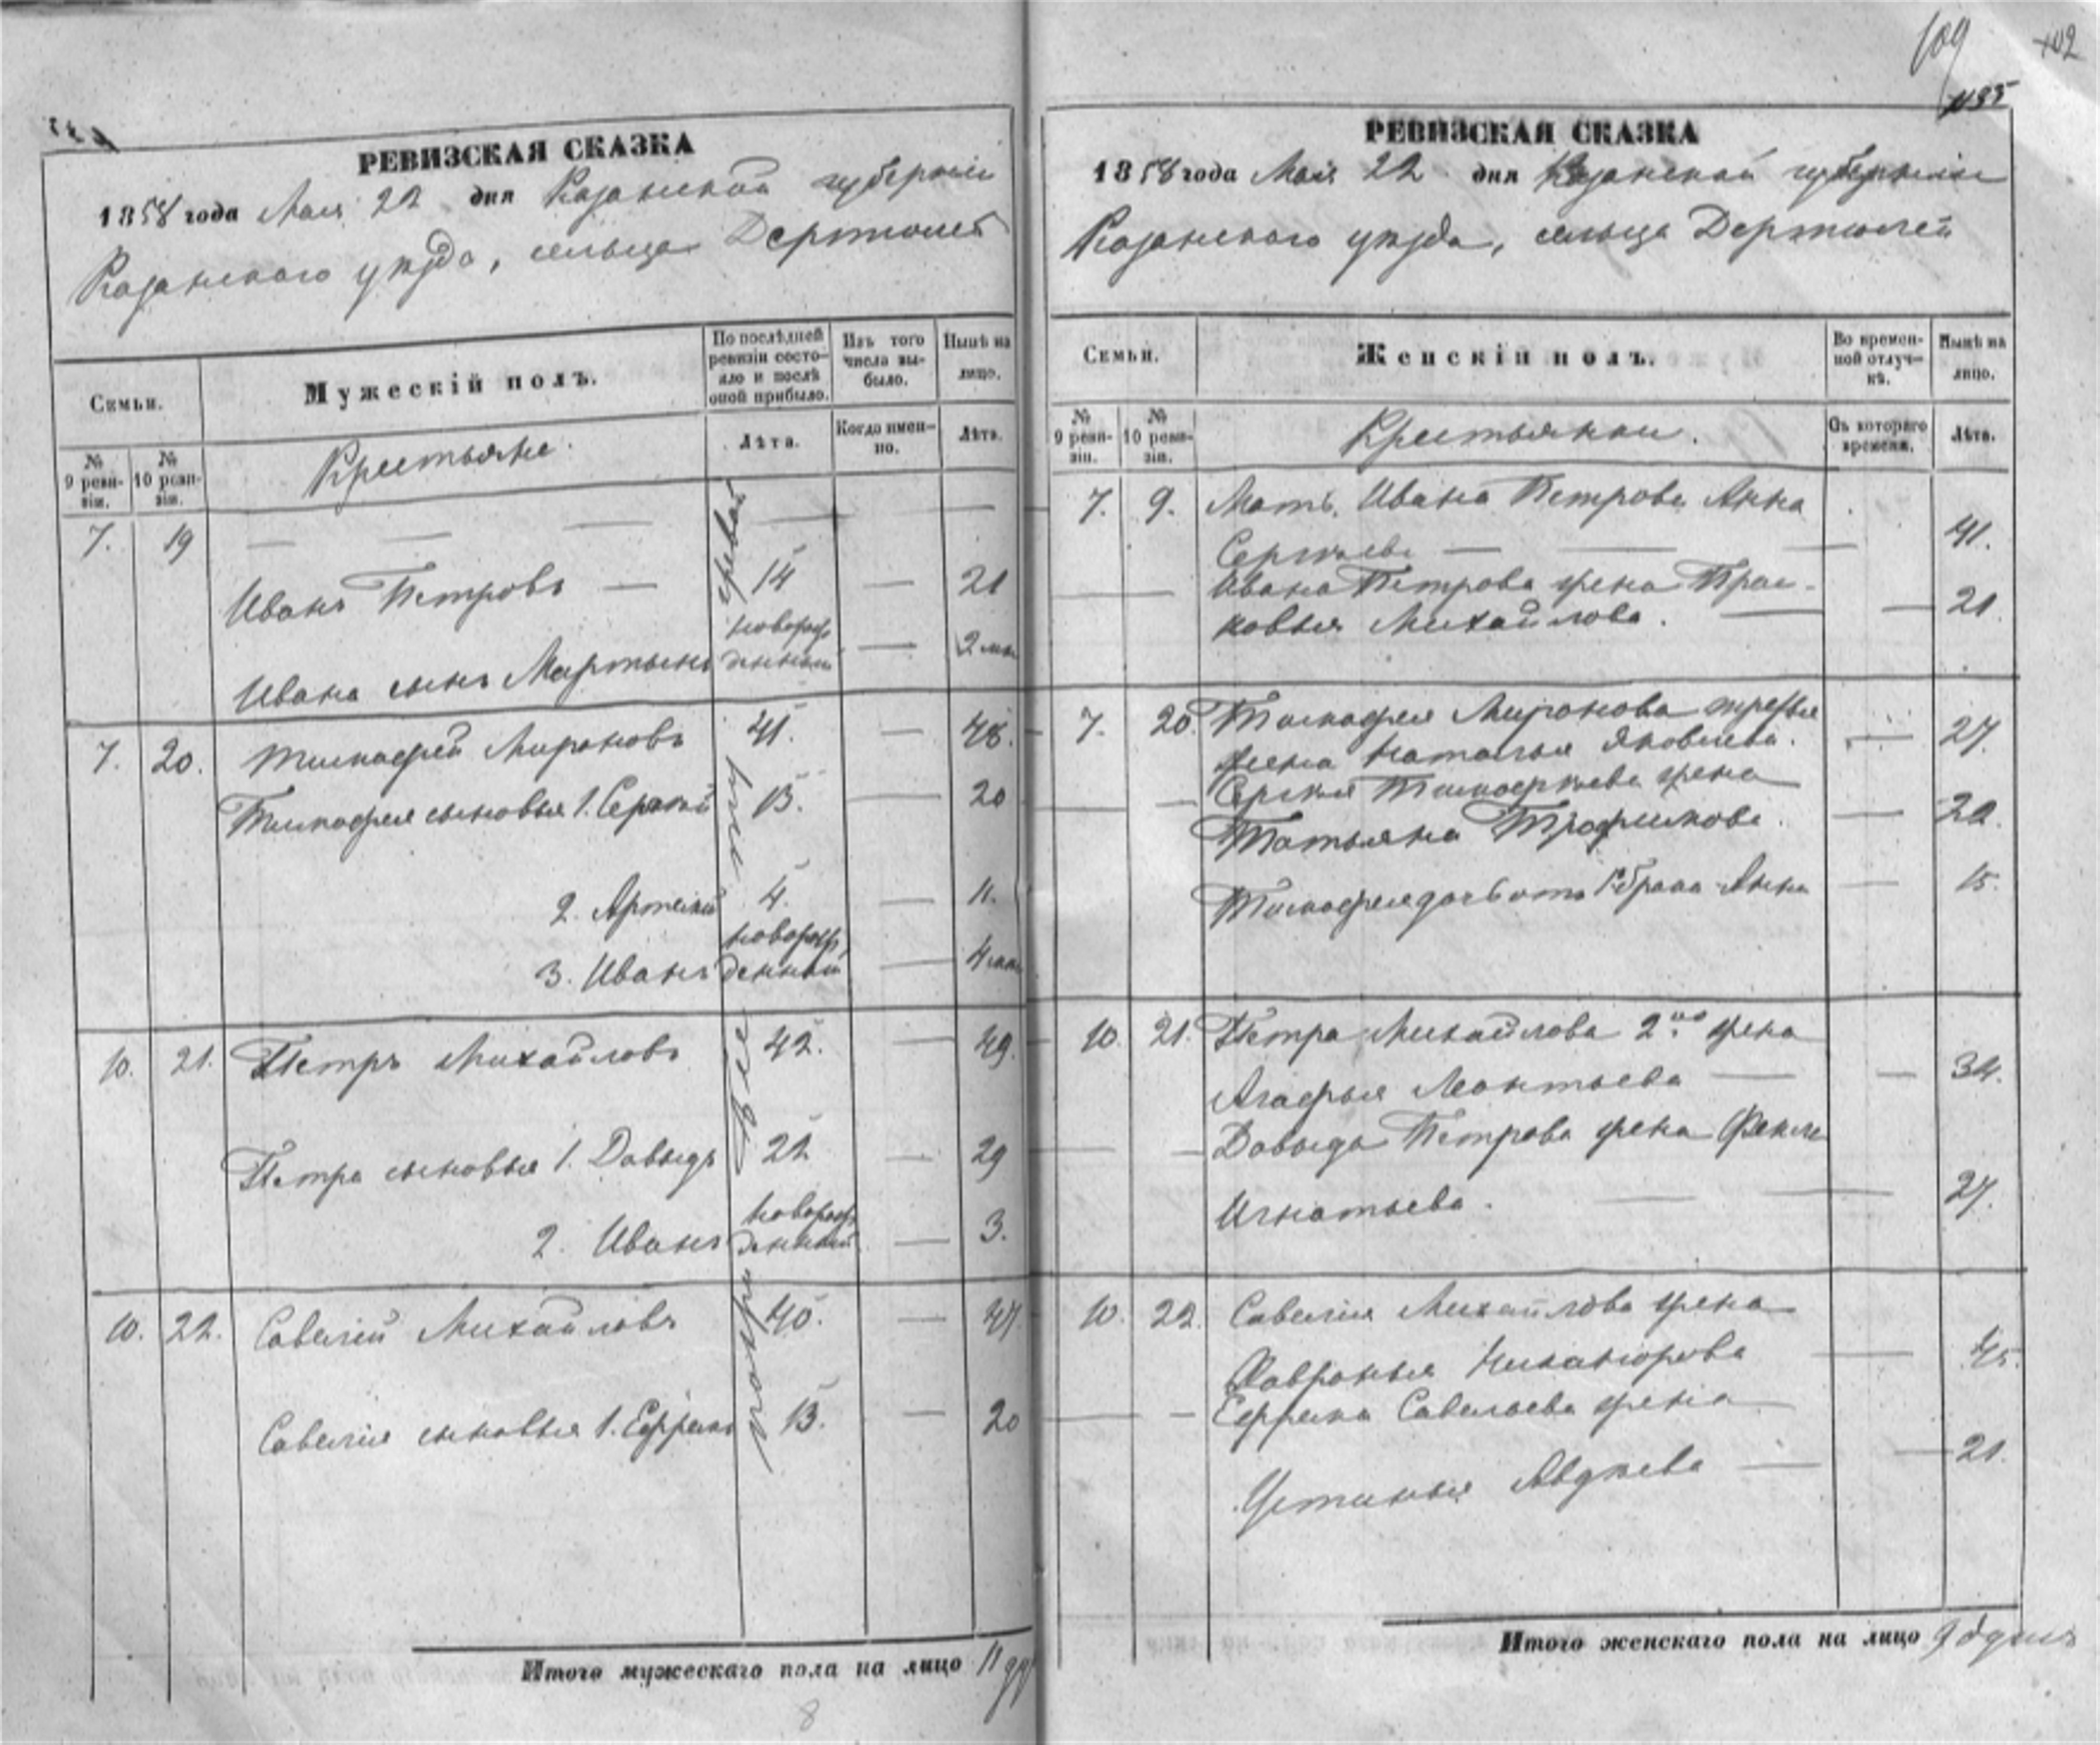 РЕВИЗСКАЯ СКАЗКА
1858 года Мая 22 дня Казанской губерніи
Казанского уѣзда, сельца Дертюлей
Семьи.
Мужескій полъ.
По послѣдней ревизіи состояло и послѣ оной прибыло.
Изъ того числа выбыло.
Нынѣ на лицо.
№ 9 ревизіи.
№ 10 ревизіи.
Крестьяне.
Лѣта.
Когда именно.
Лѣта.
7. 19
Иванъ Петровъ — 14 — 21
Ивана сынъ Мартынъ новорожденный — 2 мѣс
7. 20. Тимофей Мироновъ 41. — 48.
Тимофея сыновья 1. Сергѣй 13. — 20
2. Артемій 4. — 11.
3. Иванъ новорожденный — 4
10. 21. Петръ Михайловъ 42. — 49.
Петра сыновья 1. Давыдъ 22 — 29
2. Иванъ новорожденный — 3.
10. 22. Савелій Михайловъ 40. — 47
Савелія сыновья 1. Ефремъ 13. — 20
Итого мужескаго пола на лицо 11
8
109
102
РЕВИЗСКАЯ СКАЗКА
1858 года Мая 22 дня Казанской губерніи
Казанского уѣзда, сельца Дертюлей
Семьи.
Женскій полъ.
Во временной отлучкѣ.
Нынѣ на лицо.
№ 9 ревизіи.
№ 10 ревизіи.
Крестьянки.
Съ котораго времени.
Лѣта.
7. 9. Мать Ивана Петрова Анна
Сергѣева — 41.
Ивана Петрова жена Прас-
ковья Михайлова. — 21.
7. 20. Тимофея Миронова третья
жена Наталья Яковлева. — 27.
Сергѣя Тимофѣева жена
Татьяна Трофимова. — 20.
Тимофея дочь отъ 1 брака Анна — 15.
10. 21. Петра Михайлова 2ая жена
Агафья Леонтьева — 34.
Давыда Петрова жена Фекла
Игнатьева. — 27.
10. 22. Савелія Михайлова жена
Хавронья Никанорова — 45.
Ефрема Савельева жена
Устинья Авдѣева — 21.
Итого женскаго пола на лицо 9 душъ